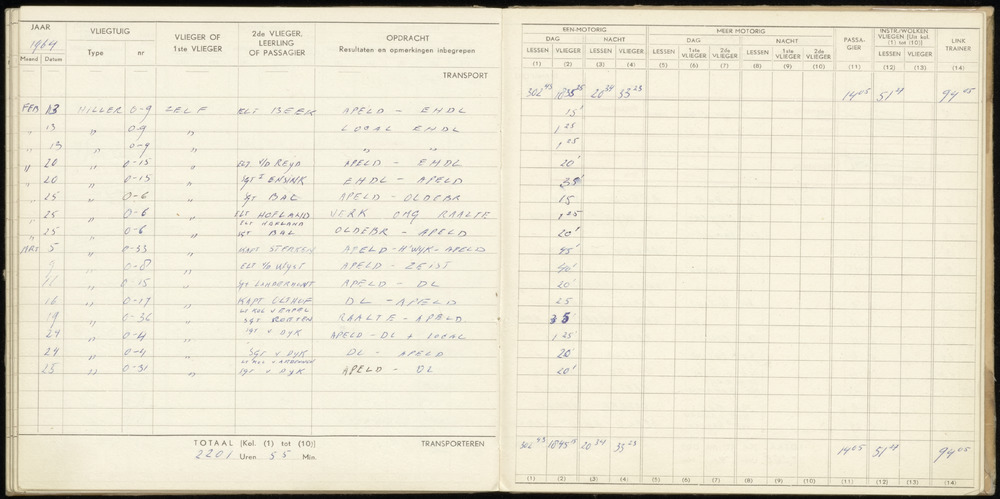 JAAR
1964
Maand Datum
VLIEGTUIG
Type nr
VLIEGER OF
1ste VLIEGER
2de VLIEGER,
LEERLING
OF PASSAGIER
OPDRACHT
Resultaten en opmerkingen inbegrepen
TRANSPORT
FEB 13 HILLER O-9 ZELF ELT BEEK APELD - EHDL
" 13 " O-9 " LOCAL EHDL
" 13 " O-9 " " "
" 20 " O-15 " ELT v/d REYD APELD - EHDL
" 20 " O-15 " SGT I ENSINK EHDL - APELD
" 25 " O-6 " SGT BAL APELD - OLDEBR
" 25 " O-6 " ELT HOFLAND VERK OMG RAALTE
" 25 " O-6 " ELT HOFLAND
SGT BAL OLDEBR - APELD
MRT 5 " O-33 " KAPT APELD - H'WYK - APELD
9 " O-8 " ELT v/d WYST APELD - ZEIST
11 " O-15 " SGT APELD - DL
16 " O-17 " KAPT OLTHOF DL - APELD
19 " O-36 " LT KOL v EMPEL
SGT ROETEN RAALTE - APELD
24 " O-4 " SGT v DYK APELD - DL + LOCAL
24 " O-4 " SGT v DYK DL - APELD
25 " O-31 " LT KOL v ARDENNEN
SGT v DYK APELD - DL
TOTAAL [Kol. (1) tot (10)] TRANSPORTEREN
2201 Uren 55 Min.
EEN-MOTORIG MEER MOTORIG
DAG NACHT DAG NACHT
LESSEN VLIEGER LESSEN VLIEGER LESSEN 1ste VLIEGER 2de VLIEGER LESSEN 1ste VLIEGER 2de VLIEGER
PASSA-
GIER
INSTR./WOLKEN
VLIEGEN [Un kol.
(1) tot (10)]
LESSEN VLIEGER
LINK
TRAINER
(1) (2) (3) (4) (5) (6) (7) (8) (9) (10) (11) (12) (13) (14)
302 43 1835 25 20 34 33 23 14 05 51 4 94 05
15'
1 25
1 25
20'
35'
15
1 25
20'
45'
40'
20'
25
35'
1 25
20'
20'
302 43 1845 15 20 34 33 23 14 05 51 4 94 05
(1) (2) (3) (4) (5) (6) (7) (8) (9) (10) (11) (12) (13) (14)